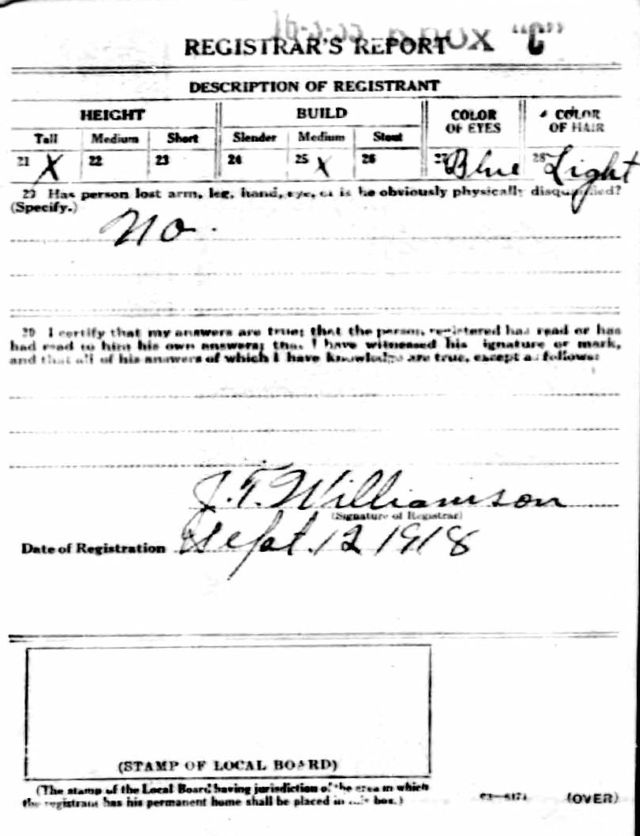 16-3-33 Knox "C"
REGISTRAR'S REPORT
DESCRIPTION OF REGISTRANT
HEIGHT BUILD COLOR OF EYES COLOR OF HAIR
Tall Medium Short Slender Medium Stout
21 X 22 23 24 25 X 26 27 Blue 28 Light
29 Has person lost arm, leg, hand, eye, or is he obviously physically disqualified?
(Specify.)
No.
30 I certify that my answers are true; that the person registered has read or has
had read to him his own answers; that I have witnessed his signature or mark,
and that all of his answers of which I have knowledge are true, except as follows:
J. T. Williamson
(Signature of Registrar)
Date of Registration Sept. 12 1918
(STAMP OF LOCAL BOARD)
(The stamp of the Local Board having jurisdiction of the area in which
the registrant has his permanent home shall be placed in this box.)
03—6171 (OVER)